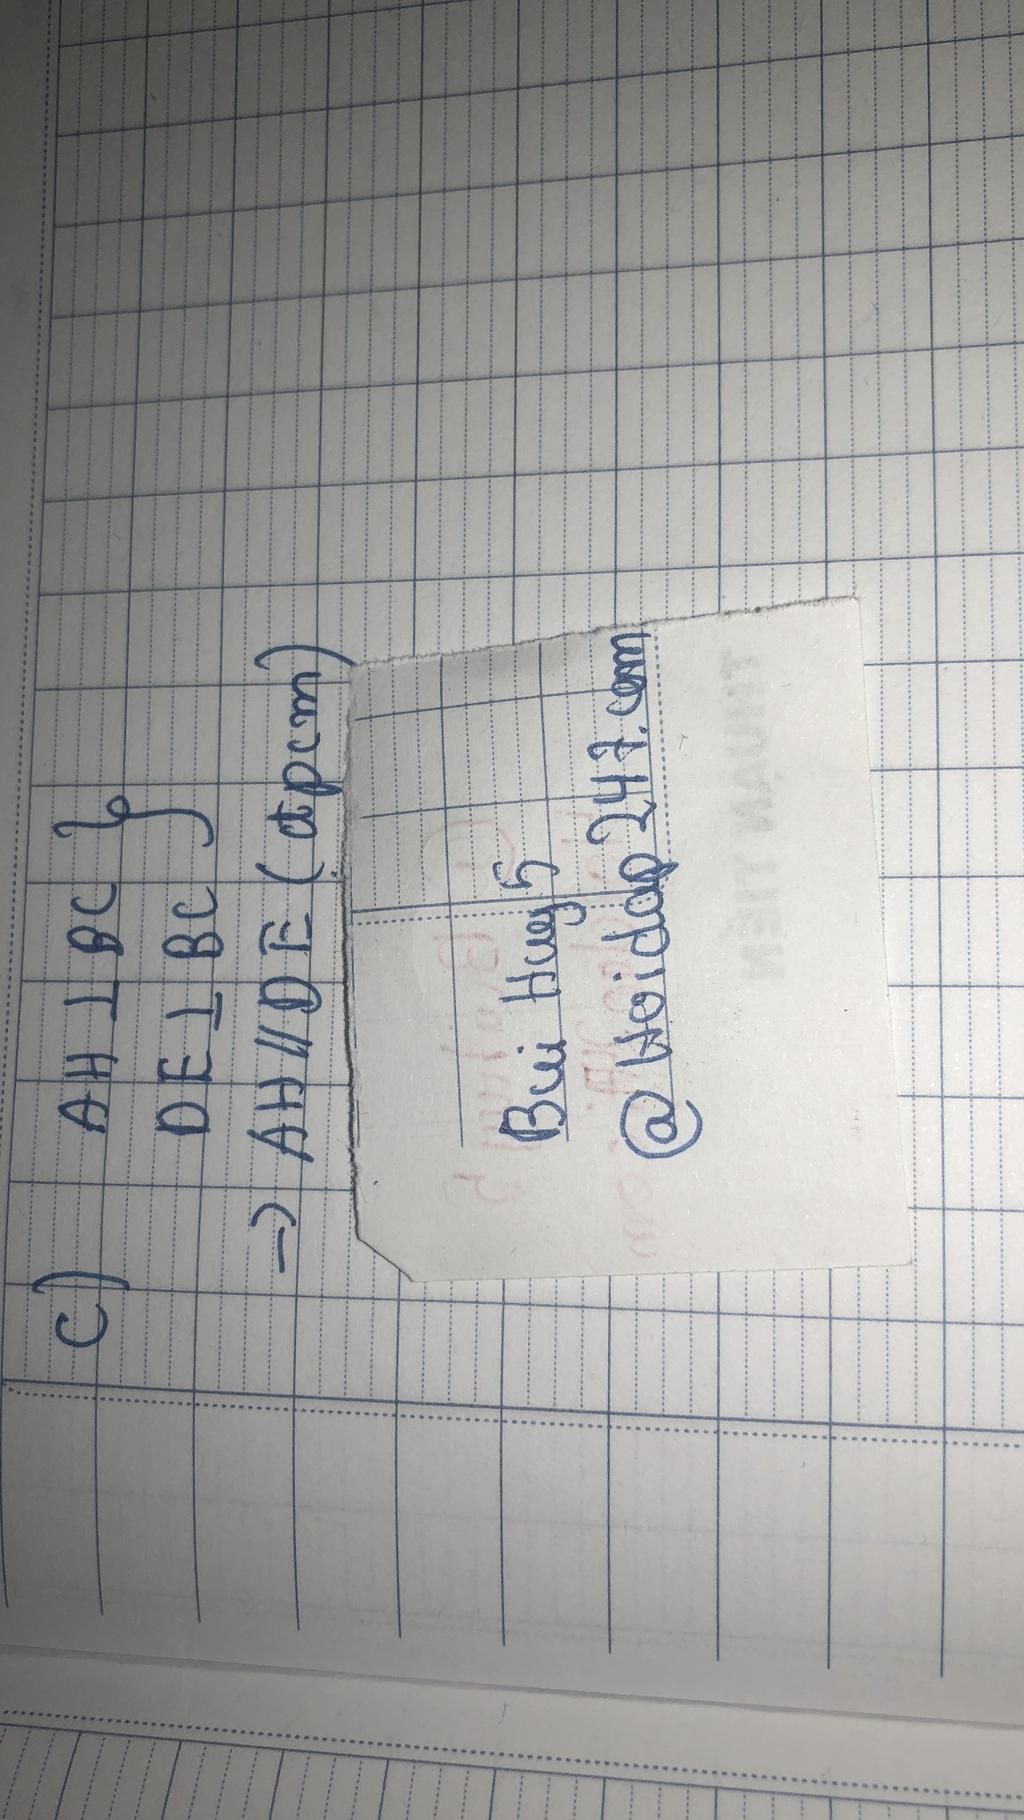 c) AH ⊥ BC }
DE ⊥ BC
→ AH // DE (đpcm)
Bui Huy 5
@ Hoidap 247.com